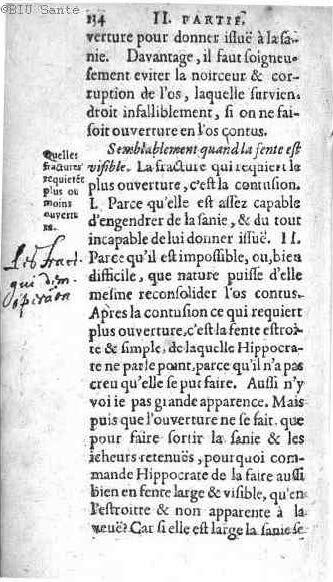 ©BIU Santé
134 II. PARTIE.
verture pour donner issuë à la sa-
nie. Davantage, il faut soigneu-
sement eviter la noirceur & cor-
ruption de l'os, laquelle survien-
droit infalliblement, si on ne fai-
soit ouverture en l'os contus.
Semblablement quand la fente est
visible. La fracture qui requiert le
plus ouverture, c'est la contusion.
I. Parce qu'elle est assez capable
d'engendrer de la sanie, & du tout
incapable de lui donner issuë. II.
Parce qu'il est impossible, ou, bien
difficile, que nature puisse d'elle
mesme reconsolider l'os contus.
Apres la contusion ce qui requiert
plus ouverture, c'est la fente estroi-
te & simple, de laquelle Hippocra-
te ne parle point, parce qu'il n'a pas
creu qu'elle se put faire. Aussi n'y
voi ie pas grande apparence. Mais
puis que l'ouverture ne se fait, que
pour faire sortir la sanie & les
icheurs retenuës, pourquoi com-
mande Hippocrate de la faire aussi
bien en fente large & visible, qu'en
l'estroitte & non apparente à la
veuë? Car si elle est large la sanie se
Quelles
fractures
requierẽt
plus ou
moins
ouvertu
re.
Les fract.
qui